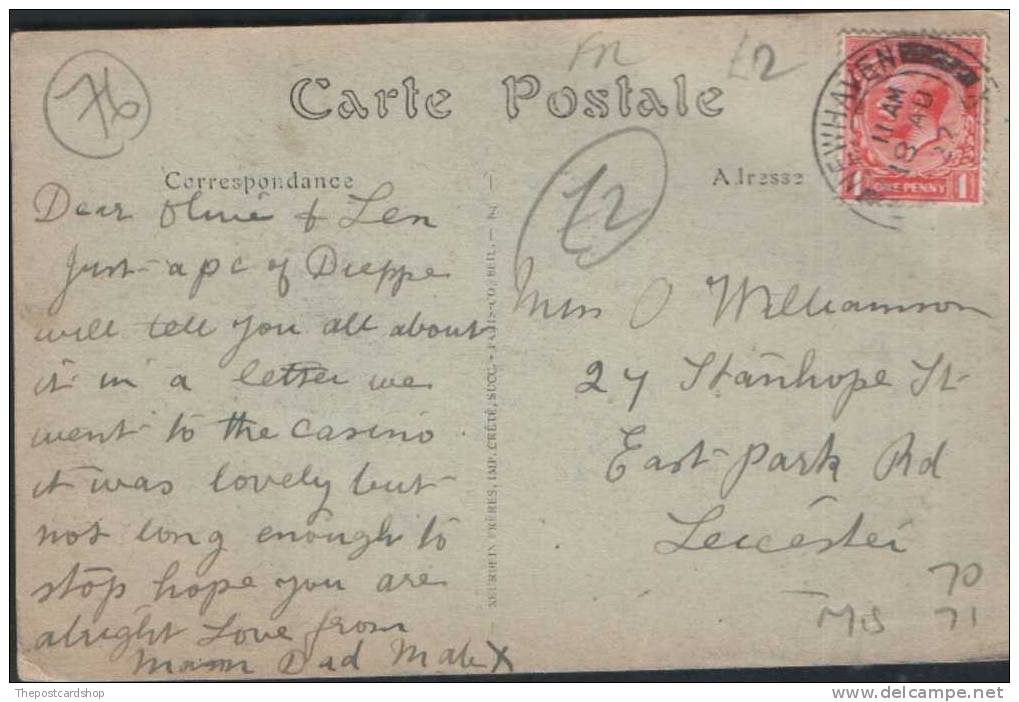 76
FR
£2
Carte Postale
NEWHAVEN
11 AM
18 AU
27
1 ONE PENNY 1
Correspondance
Adresse
Dear Olive & Len
Just a pc of Dieppe
will tell you all about
it in a letter we
went to the casino
it was lovely but
not long enough to
stop hope you are
alright Love from
Mam Dad X
NEURDEIN FRÈRES, IMP. CRÉTÉ, SUCC. - PARIS-CORBEIL.
£2
Mrs O Williamson
27 Stanhope St
East Park Rd
Leicester
70
71
Thepostcardshop
www.delcampe.net